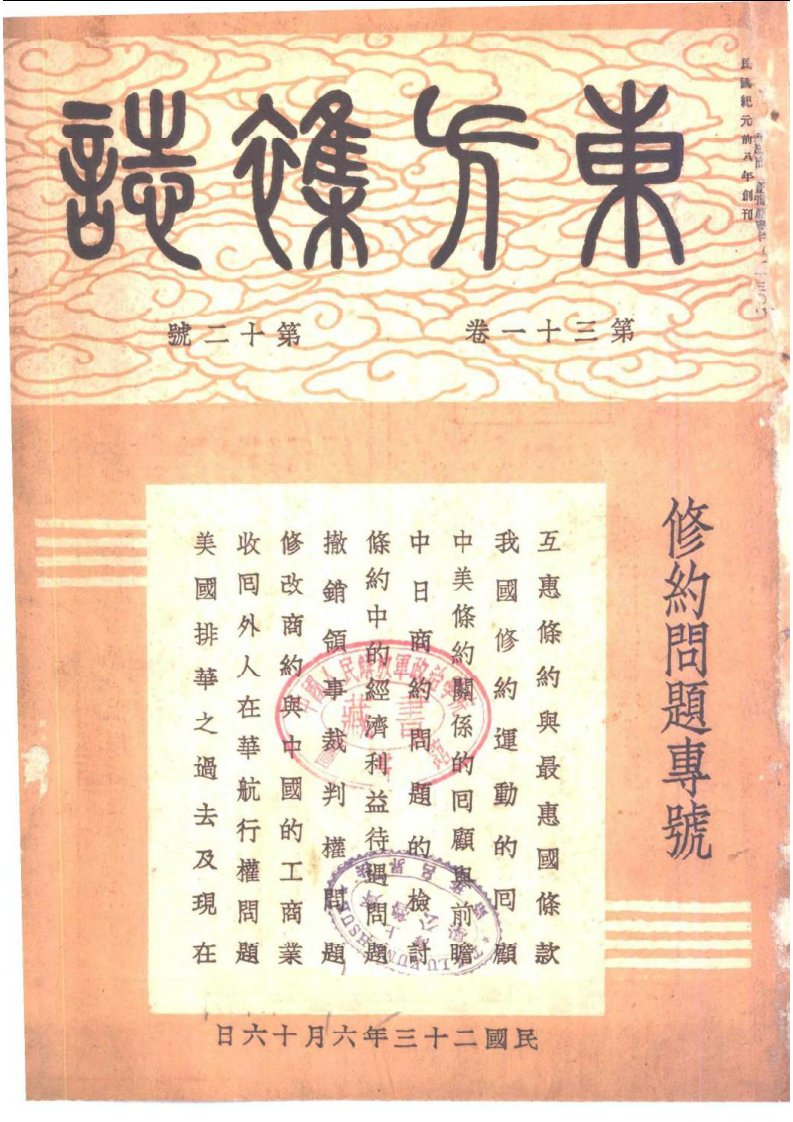 民國紀元前八年創刊
東方雜誌
第三十一卷
第十二號
修約問題專號
互惠條約與最惠國條款
我國修約運動的囘顧
中美條約關係的囘顧與前瞻
中日商約問題的檢討
條約中的經濟利益待遇問題
撤銷領事裁判權問題
修改商約與中國的工商業
收囘外人在華航行權問題
美國排華之過去及現在
中國人民解放軍政治學院
藏書
民國二十三年六月十六日